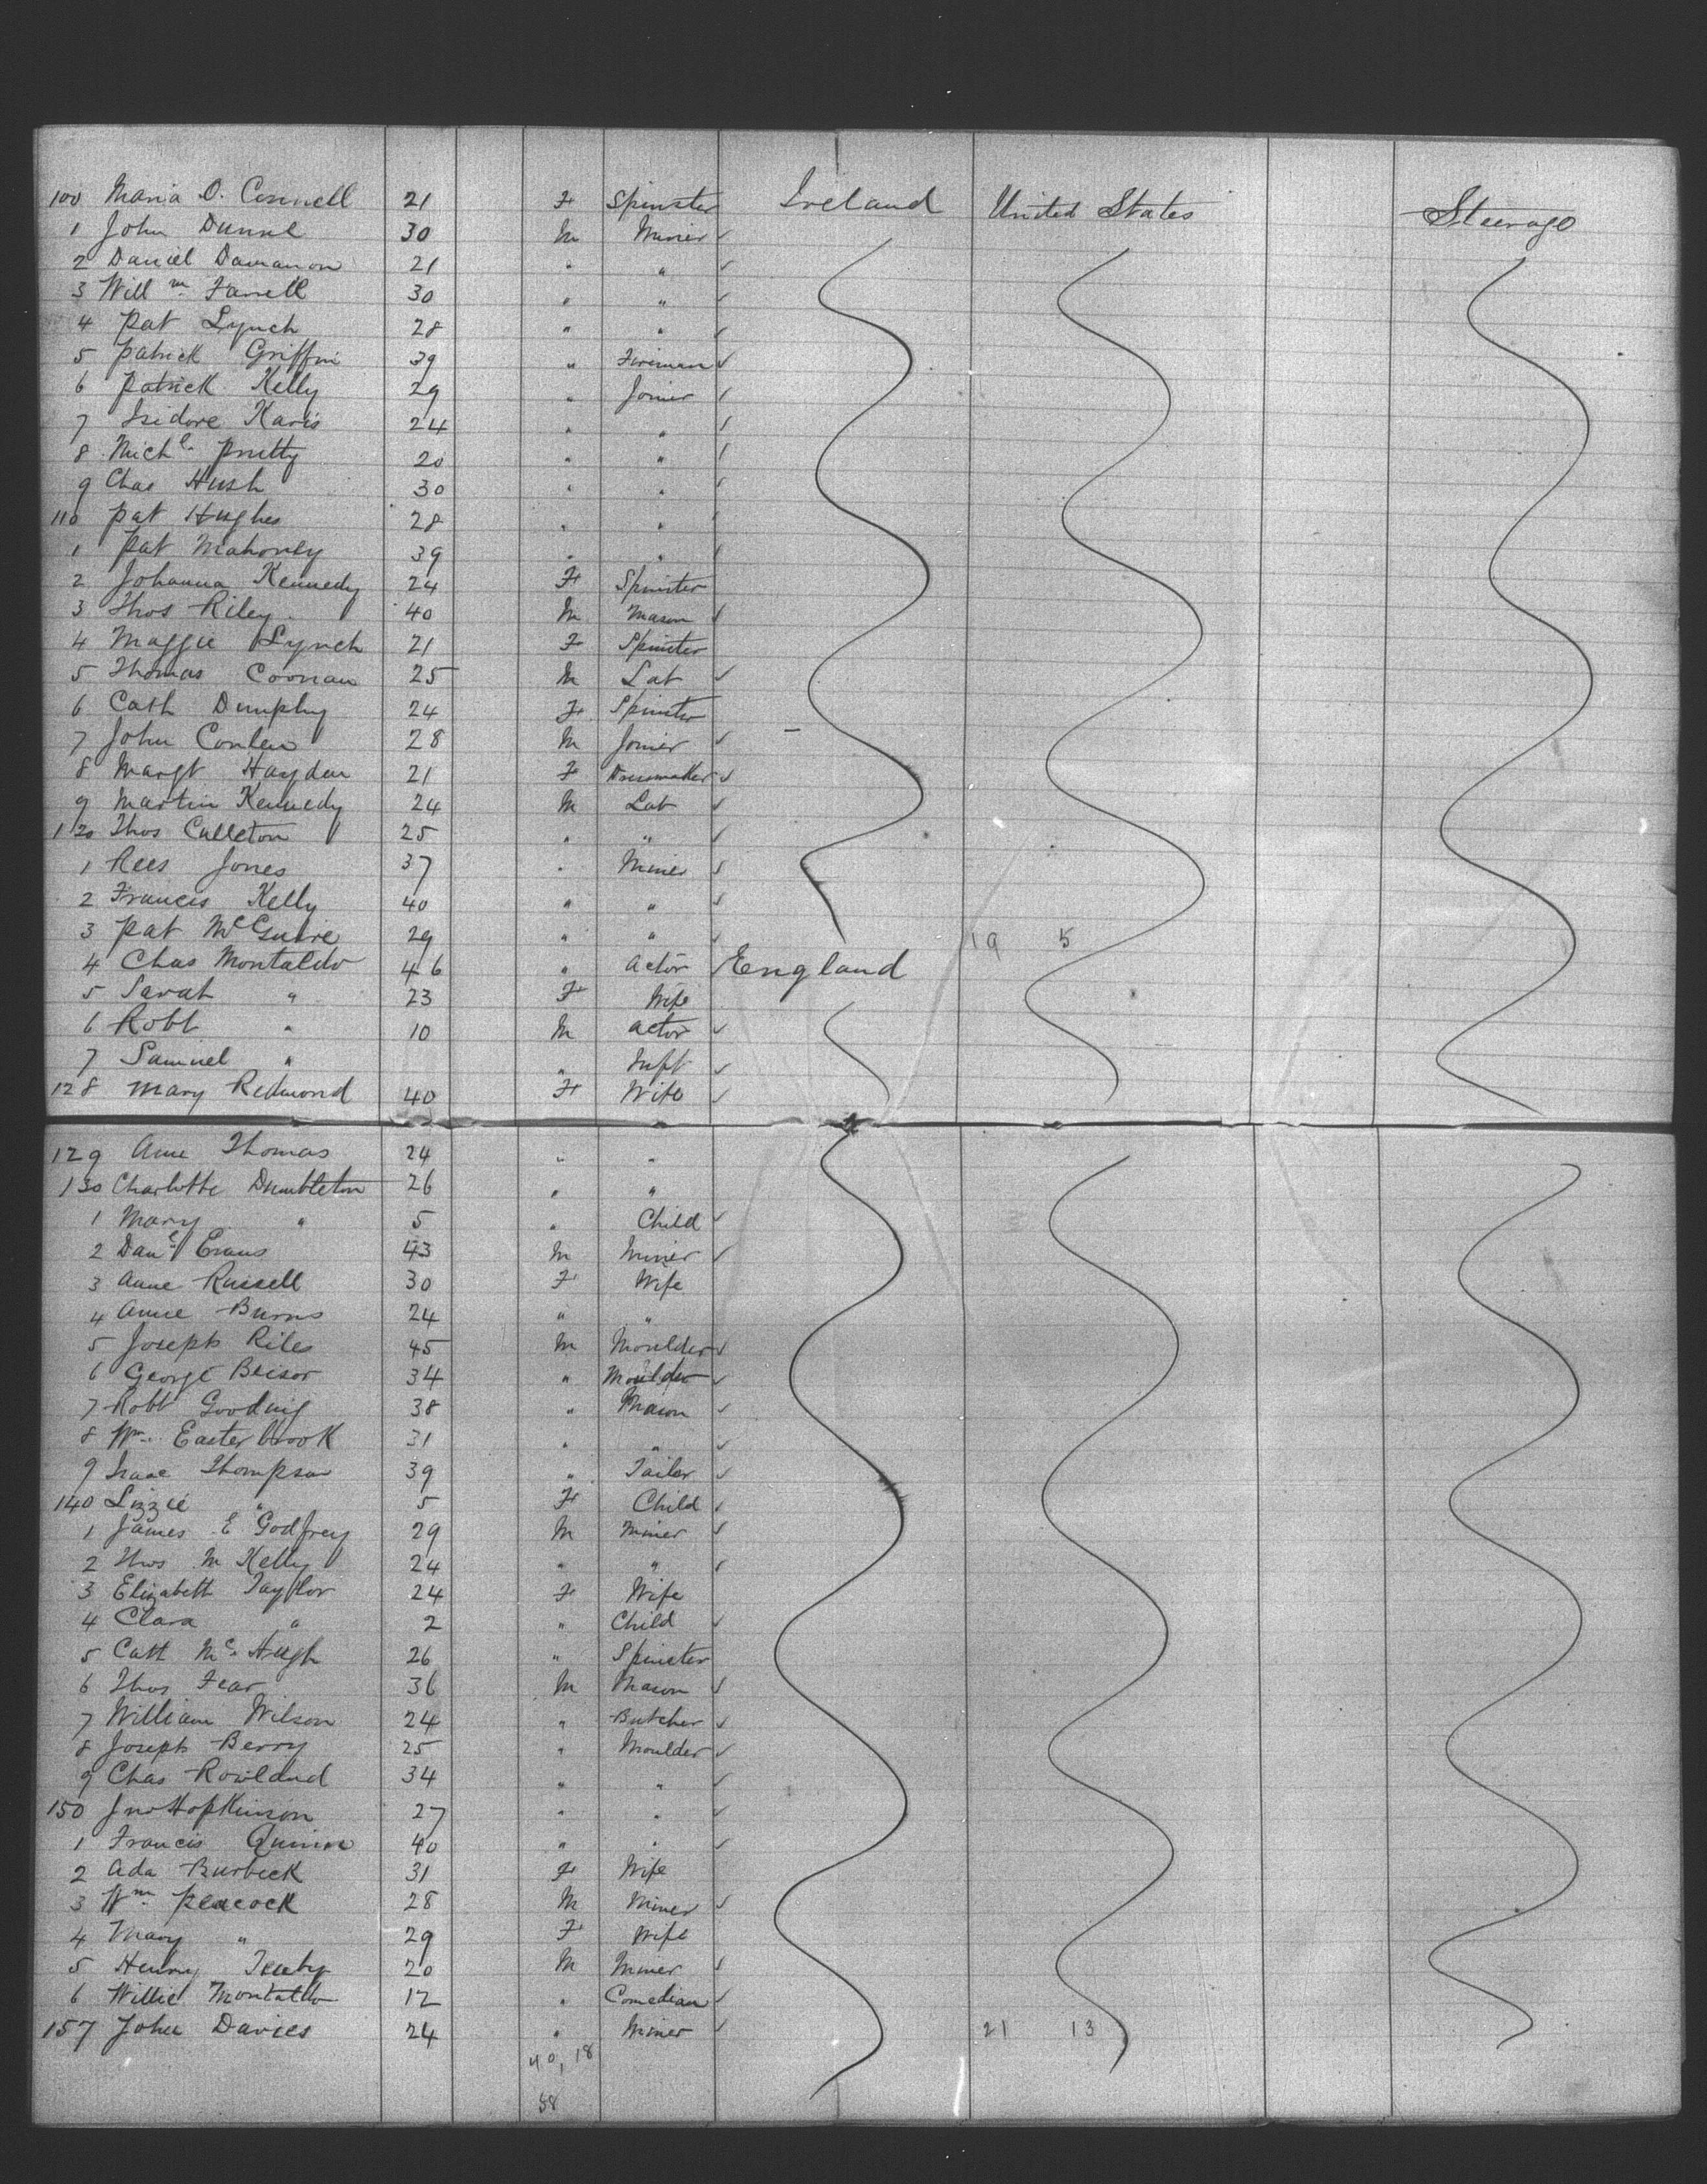 100 Maria O. Connell 21 F Spinster Ireland United States Steerage
1 John Dunne 30 M Miner ✓
2 Daniel 21 " " ✓
3 Will m Farrell 30 " " ✓
4 Pat Lynch 28 " " ✓
5 Patrick Griffin 39 " Fireman ✓
6 Patrick Kelly 29 " Joiner ✓
7 Isidore Karis 24 " " ✓
8 Mich l Pretty 20 " " ✓
9 Chas Hush 30 " " ✓
110 Pat Hughes 28 " " ✓
1 Pat Mahoney 39 " " ✓
2 Johanna Kennedy 24 F Spinster
3 Thos Riley 40 M Mason ✓
4 Maggie Lynch 21 F Spinster
5 Thomas Coonan 25 M Lab ✓
6 Cath Dunphy 24 F Spinster
7 John Conlen 28 M Joiner ✓
8 Margt Hayden 21 F Dressmaker ✓
9 Martin Kennedy 24 M Lab ✓
120 Thos Culleton 25 " " ✓
1 Rees Jones 37 " Miner ✓
2 Francis Kelly 40 " " ✓
3 Pat McGuire 29 " " ✓ 19 5
4 Chas Montaldo 46 " Actor ✓ England
5 Sarah " 23 F Wife
6 Robt " 10 M Actor ✓
7 Samuel " " Inft ✓
128 Mary Redmond 40 F Wife ✓
129 Anne Thomas 24 " "
130 Charlotte Dumbleton 26 " "
1 Mary " 5 " Child ✓
2 Dan l Evans 43 M Miner ✓
3 Anne Russell 30 F Wife
4 Annie Burns 24 " "
5 Joseph Riles 45 M Moulder ✓
6 George 34 " Moulder ✓
7 Robt Gooding 38 " Mason ✓
8 Wm Easterbrook 31 " " ✓
9 Isaac Thompson 39 " Tailor ✓
140 Lizzie " 5 F Child ✓
1 James E Godfrey 29 M Miner ✓
2 Thos M Kelly 24 " " ✓
3 Elizabeth Taylor 24 F Wife
4 Clara " 2 " Child ✓
5 Cath Mc Hugh 26 " Spinster
6 Thos Fear 36 M Mason ✓
7 William Wilson 24 " Butcher ✓
8 Joseph Berry 25 " Moulder ✓
9 Chas Rowland 34 " " ✓
150 Jno Hopkinson 27 " " ✓
1 Francis Quinn 40 " " ✓
2 Ada Burbeck 31 F Wife
3 Wm Peacock 28 M Miner ✓
4 Mary " 29 F Wife
5 Henry 20 M Miner ✓
6 Willie Montaldo 12 " Comedian ✓
157 John Davies 24 " Miner ✓ 21 13
40, 18
58